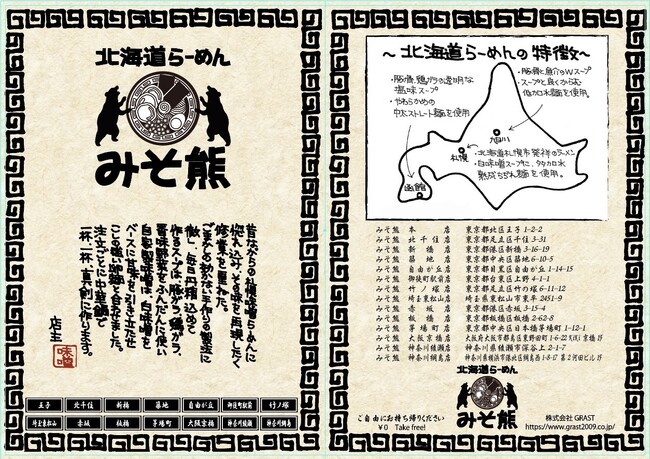 北海道らーめん
みそ熊
昔ながらの札幌味噌らーめんに
惚れ込み、その味を再現したく
修業を重ねた。
ごまかしの効かない手作りの製法に
徹し、毎日丹精込めて
作るスープは豚がら、鶏がら、
香味野菜をふんだんに使い
自家製味噌は、白味噌を
ベースに甘味を引き立たせ
こしの強い卵麺と合わせました。
注文ごとに中華鍋で
一杯一杯真剣に作ります。
店主
味噌
王子 北千住 新橋 築地 自由が丘 御徒町駅前 竹ノ塚
埼玉東松山 赤坂 板橋 茅場町 大阪京橋 神奈川綾瀬 神奈川綱島
～北海道らーめんの特徴～
・豚骨、鶏ガラの透明な
塩味スープ
・やわらかめの
中太ストレート麺を使用
・豚骨と魚介のWスープ
・スープと良くからむ
低加水麺を使用。
旭川
札幌
・北海道札幌市発祥のラーメン
・白味噌スープに、多加水
熟成ちぢれ麺を使用。
函館
みそ熊 本店 東京都北区王子 1-2-2
みそ熊 北千住店 東京都足立区千住 3-31
みそ熊 新橋店 東京都港区新橋 3-16-19
みそ熊 築地店 東京都中央区築地 6-10-5
みそ熊 自由が丘店 東京都目黒区自由が丘 1-14-15
みそ熊 御徒町駅前店 東京都台東区上野 4-1-1
みそ熊 竹ノ塚店 東京都足立区竹の塚 6-11-12
みそ熊 埼玉東松山店 埼玉県東松山市東平 2451-9
みそ熊 赤坂店 東京都港区赤坂 3-15-4
みそ熊 板橋店 東京都板橋区板橋 2-62-8
みそ熊 茅場町店 東京都中央区日本橋茅場町 1-12-1
みそ熊 大阪京橋店 大阪府大阪市都島区東野田町
みそ熊 神奈川綾瀬店 神奈川県綾瀬市深谷上 2-1-7
みそ熊 神奈川綱島店 神奈川県横浜市港北区綱島西 1-8-17
北海道らーめん
みそ熊
ご自由にお持ち帰りください
¥0 Take free!
株式会社 GRAST
https://www.grast2009.co.jp/